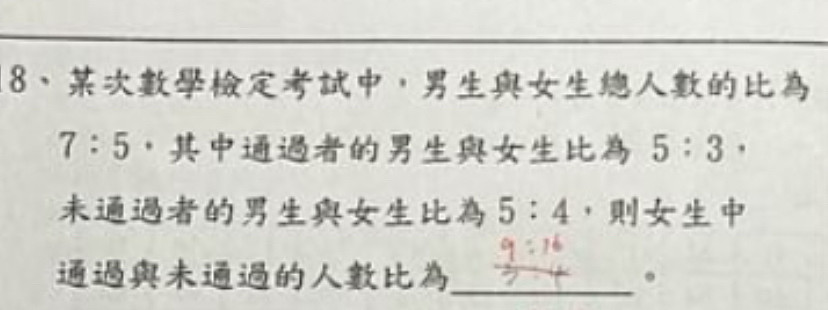 18、某次數學檢定考試中，男生與女生總人數的比為
7：5，其中通過者的男生與女生比為 5：3，
未通過者的男生與女生比為5：4，則女生中
9：16
通過與未通過的人數比為3：4。